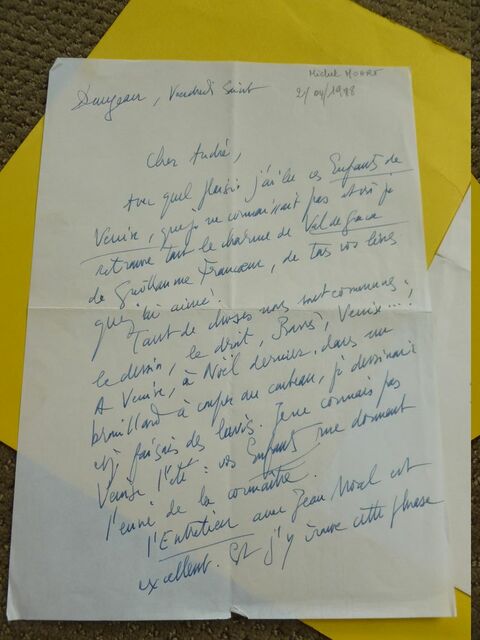 Michel MOHRT
Dangeau, Vendredi Saint
2/04/1988
Cher André,
Avec quel plaisir j'ai lu ces Enfants de
Venise, que je ne connaissais pas et où je
retrouve tout le charme de Val de grâce
de Guillaume Francœur, de tous vos livres
que j'ai aimé!
Tant de choses nous sont communes:
le dessin, le droit, Barrès, Venise...;
A Venise, à Noël dernier, dans un
brouillard à couper au couteau, je dessinais
et faisais des lavis. Je ne connais pas
Venise l'été: vos Enfants me donnent
l'envie de la connaître.
l'Entretien avec Jean Noal est
excellent. Et j'y trouve cette phrase